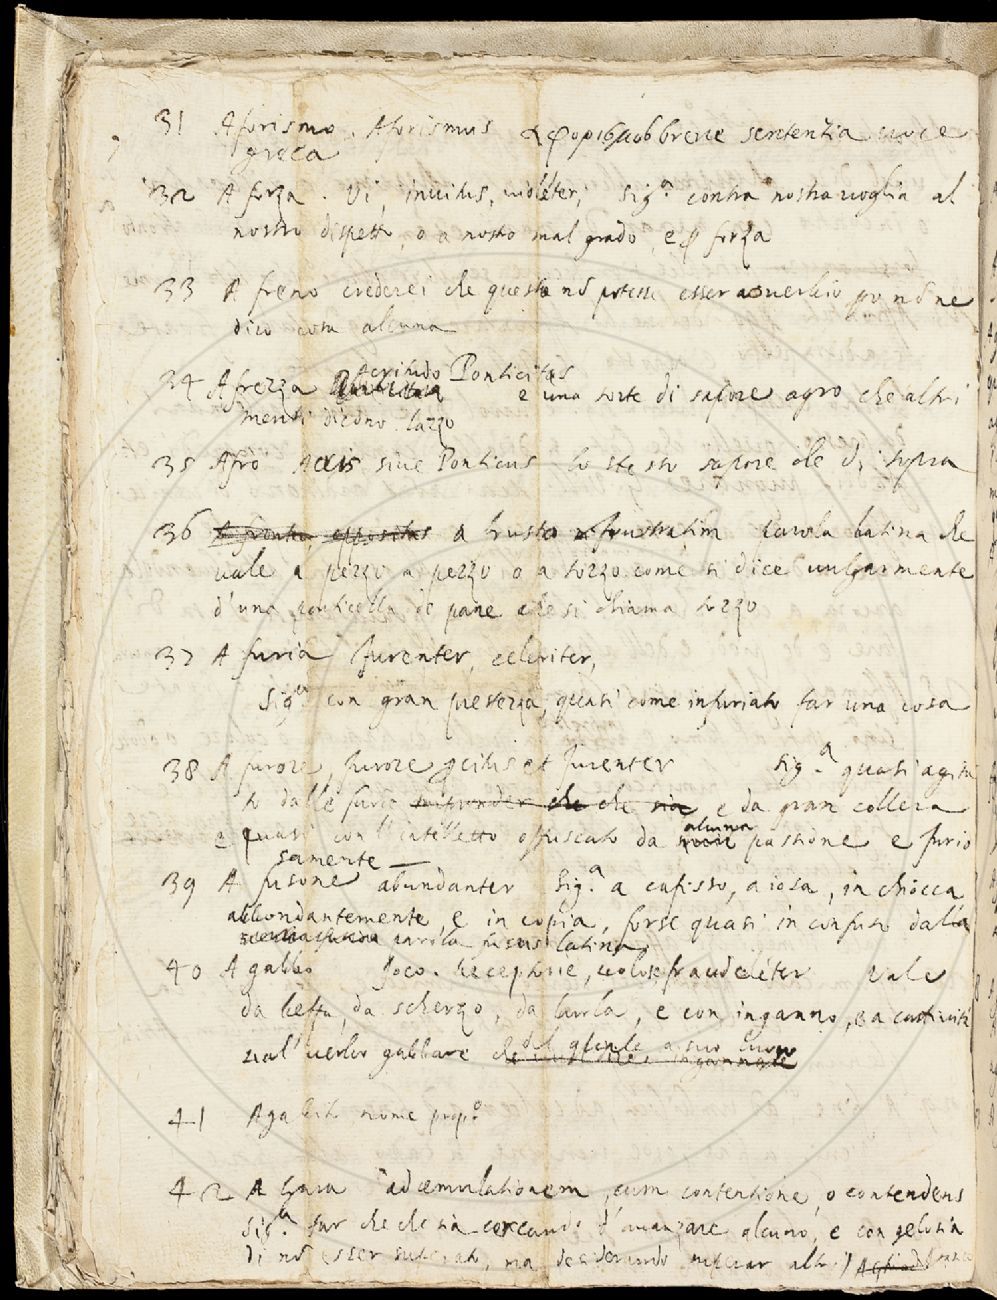 31 Aforismo. Aforismus αφορισμοσ breve sentenzia voce
greca
32 A forza. Vi, invitus, violēter, Sig.a contra nostra voglia al
nostro dispetto, o a nosto mal grado, e p forza
33 A freno crederei che questo nō potesse esser avverbio po nō ne
dico cosa alcuna
34 Afrezza Acritudo Ponticitas e una sorte di sapore agro che altri
menti dicono lazzo
35 Afro Acris sive Ponticus lo stesso sapore che di sopra
36 A fronte, oppositus a frusto frustratim parola latina che
vale a pezzo a pezzo o a tozzo come si dice vulgarmente
d'una particella de pane che si chiama tozzo
37 A furia furenter, celeriter,
Sig.a con gran prestezza, quasi come infuriato far una cosa
38 A furore, furore percitus et furenter Sig.a quasi agita
to dalle furie che che sia e da gran collera
e quasi con l'intelletto offuscato da alcuna passione e furio
samente
39 A fusone abundanter Sig.a a cafisso, a iosa, in chiocca
abbondantemente e in copia, forse quasi in confuso dalla
parola fusus latina.
40 A gabbo Joco. deceptorie, dolose, fraudelēter Vale
da beffa, da scherzo, da burla, e con inganno,
val' verbo gabbare del quale a suo luogo
41 Agabito nome prop.o
42 A Gara ad emulationem, cum contentione, o contendens
Sig.a far che che sia cercando d'avanzare alcuno, e con gelosia
di nō esser superato, ma desiderando superar altri